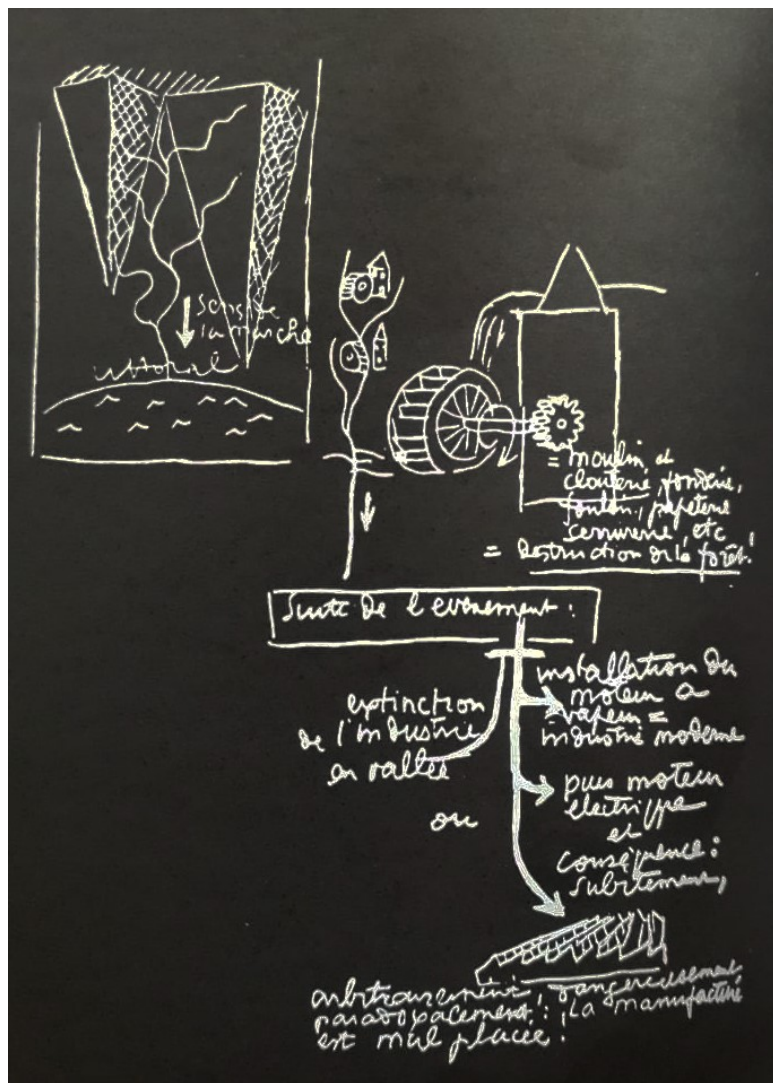 sens de
la marche
littoral
= moulin et
clouterie, fonderie,
foulon, papeterie
serrurerie, etc
= destruction de la forêt!
Suite de l'evènement :
extinction
de l'industrie
en vallée
ou
installation du
moteur a
vapeur =
industrie moderne
puis moteur
electrique
et
conséquence :
subitement,
arbitrairement, dangereusement
paradoxalement : la manufacture
est mal placée !